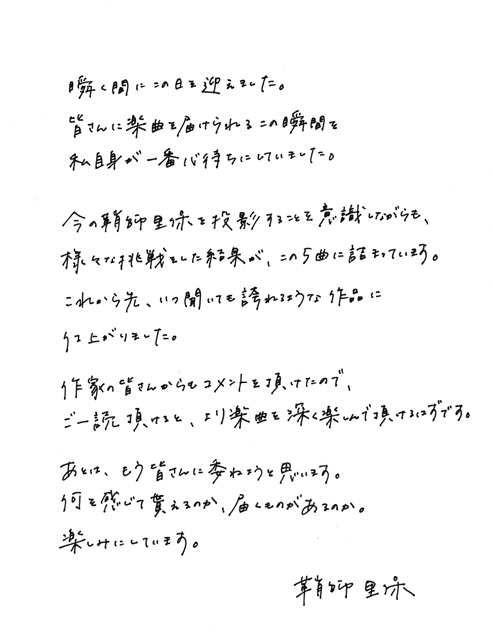 瞬く間にこの日を迎えました。
皆さんに楽曲を届けられるこの瞬間を
私自身が一番心待ちにしていました。
今の鞘師里保を投影することを意識しながらも、
様々な挑戦をした結果が、この5曲に詰まっています。
これから先、いつ聞いても誇れるような作品に
仕上がりました。
作家の皆さんからもコメントを頂けたので、
ご一読頂けると、より楽曲を深く楽しんで頂けるはずです。
あとは、もう皆さんに委ねようと思います。
何を感じて貰えるのか、届くものがあるのか。
楽しみにしています。
鞘師里保